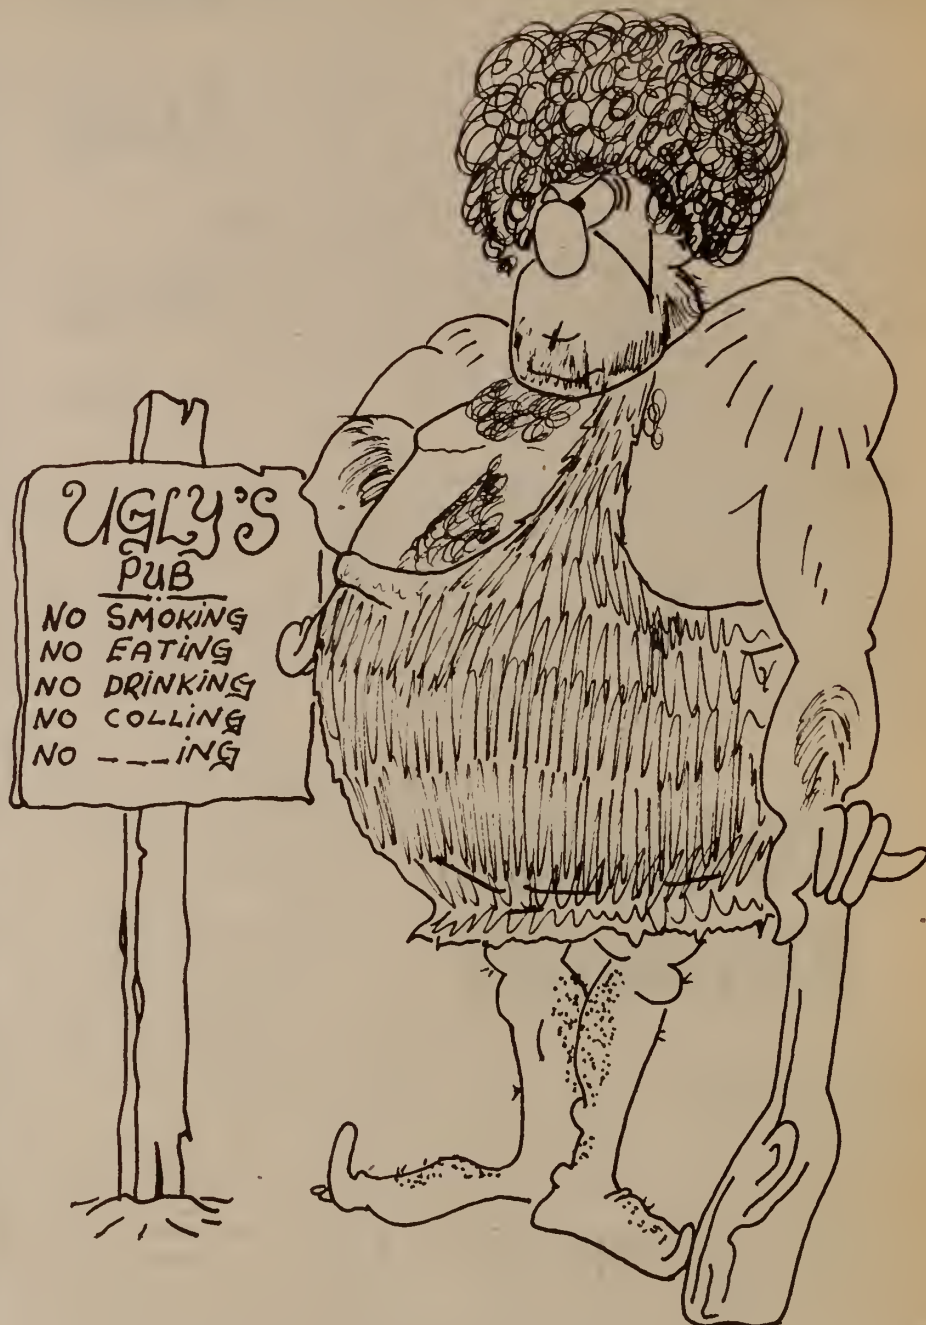 UGLY'S
PUB
NO SMOKING
NO EATING
NO DRINKING
NO COLLING
NO ___ING